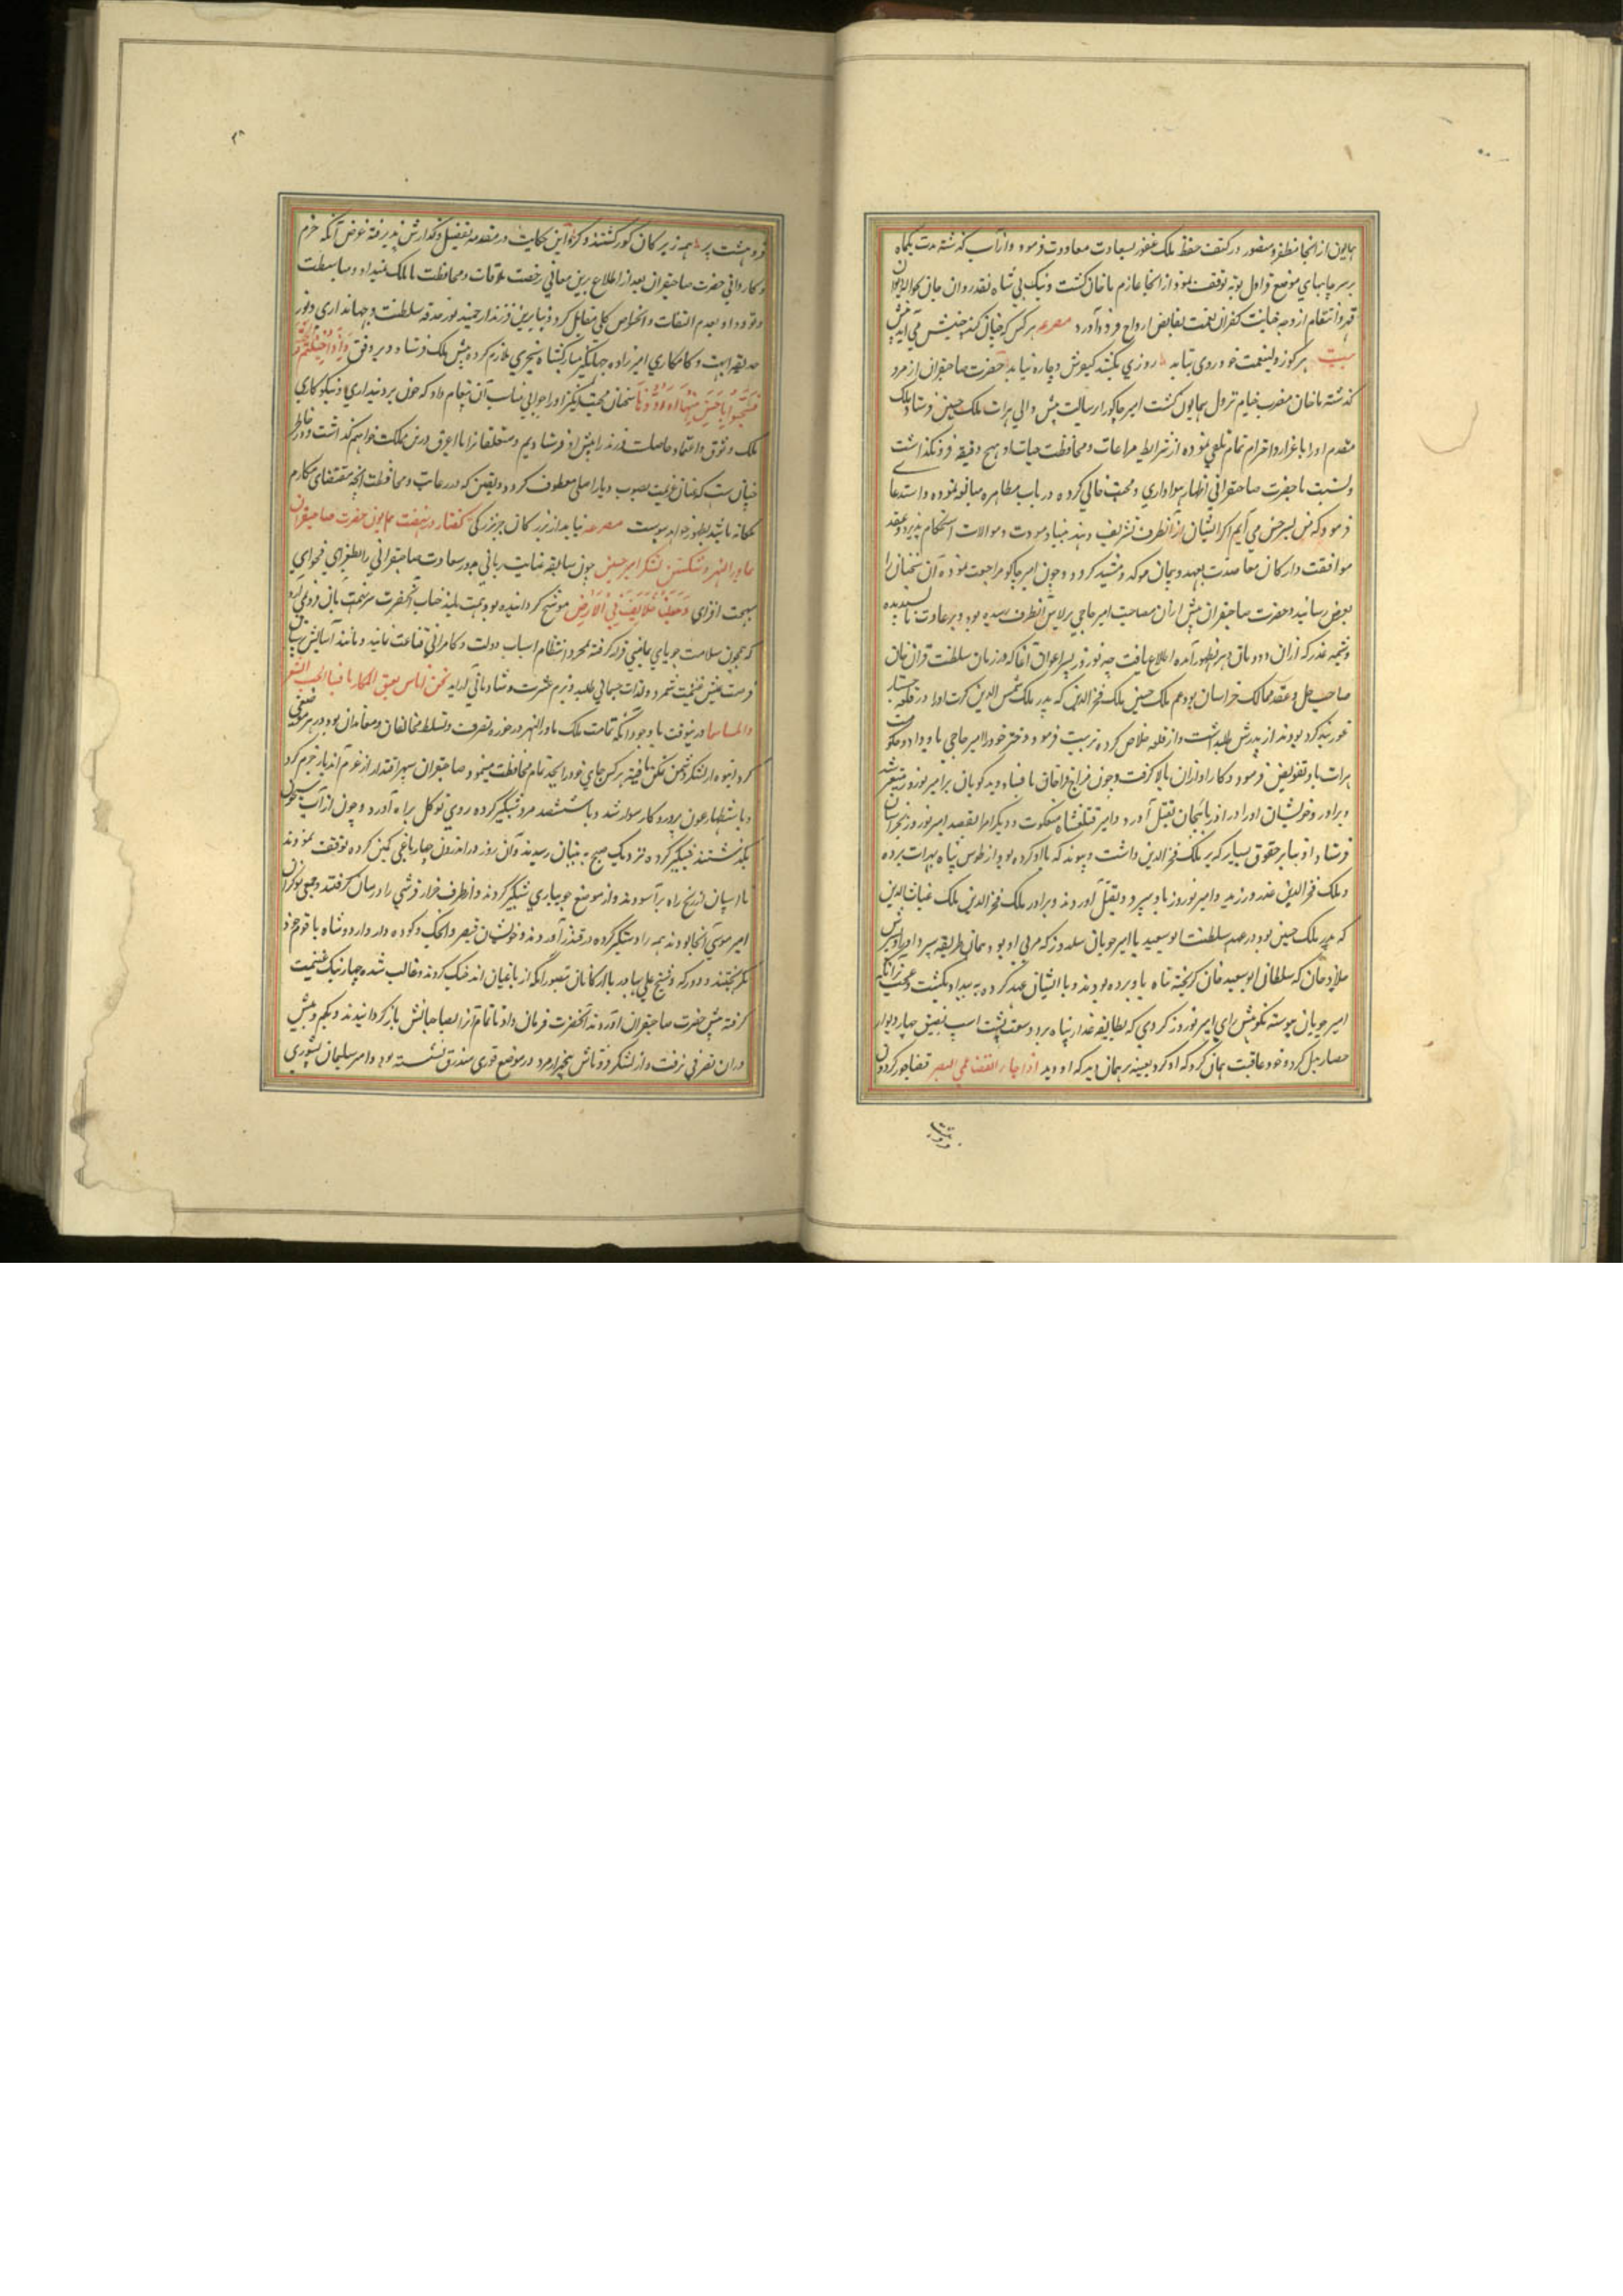 همایون از آنجا مظفر و منصور در کنف حفظ ملک غفور بسعادت معاودت فرمود و از آب گذشته مدت یکماه
بر سر چاههای موضع توقف نمود و از آنجا عازم ماخان گشت و نیک پی شاه نقد روان جان
قهر و انتقام از وجه خیانت کفران نعمت بقابض ارواح فرود آورد مصرعه هر کس که چنان کند چنینش آید پیش
بیت هر کو ز ولینعمت خود روی بتابد روزی بکشد کیفرش و چاره نیابد حضرت صاحبقران از مرو
گذشته ماخان مضرب خیام نزول همایون گشت امیر جاکو را برسالت پیش والی هرات ملک حسین فرستاد ملک
مقدم او را باعزاز و احترام تمام تلقی نموده از شرایط مراعات و محافظت هیچ دقیقه فرو نگذاشت
و نسبت با حضرت صاحبقرانی اظهار هواداری و محبت کرده در باب مظاهره مبالغه نموده و استدعا
فرمود که من بسرخس می آیم اگر ایشان از آنطرف تشریف دهند بنیاد مودت و موالات استحکام پذیرد و عقد
موافقت و ارکان معاضدت بعهد و پیمان موکد و مشید گردد و چون امیر جاکو مراجعت نموده آن سخنان را
بعرض رسانید و حضرت صاحبقران پیش از آن مصاحب امیر حاجی برلاس آنطرف رسیده بود و بر عادت ناپسندیده
و شیمه غدر که از آن دودمان بظهور آمده اطلاع یافت چه نوروز پسر ارغون آغا که در زمان سلطنت غزان خان
صاحب حل و عقد ممالک خراسان بود عم ملک حسین ملک فخر الدین که پدر ملک شمس الدین کرت او را در قلعه
غور بند کرده بود از پدرش طلب داشت و از قلعه خلاص کرده تربیت فرمود و دختر خود را امیر حاجی باو داد و حکومت
هرات باو تفویض فرمود و کار او از آن بالا گرفت و چون مزاج غازان با فساد بدگویان بر امیر نوروز متغیر شد
و برادر و خویشان او را در اذربایجان بقتل آورد و امیر قتلغشاه و دیگر امرا بقصد امیر نوروز بخراسان
فرستاد او بنابر حقوق بسیار که بر ملک فخر الدین داشت و پیوند که با او کرده بود از طوس پناه بهرات برد
و ملک فخر الدین غدر ورزید و امیر نوروز بسپرد و بقتل آوردند و برادر ملک فخر الدین ملک غیاث الدین
که پدر ملک حسین بود در عهد سلطنت ابوسعید با امیر چوبان سلدوز که مربی او بود همان طریقه سپرد
که سلطان ابو سعید خان گریخته پناه باو برده بودند و با ایشان عهد کرده بیداد بکشت
امیر چوبان پیوسته نکوهش رای امیر نوروز کردی که بطایفه غدار پناه برد و سعت پشت اسپ بضیق چهار دیوار
حصار بدل کرد و خود عاقبت همان کرد که او کرد و بعینه همان دید که او دید اذا جاء القضا عمی البصر قضا چون ز گردون
فرو هشت پر همه زیرکان کور گشتند و کر و این حکایت در مقدمه بتفصیل گذارش پذیرفته غرض آنکه حزم
و کاردانی حضرت صاحبقران بعد از اطلاع برین معانی رخصت ملاقات و محافظت با ملک نمیداد و مباسطت
و تودد او بعدم التفات و اخلاص کلی مقابل کرد و بنابرین فرزند ارجمند نور حدقه سلطنت و جهانداری و نور
حدیقه ابهت و کامکاری امیرزاده جهانگیر را مبارکشاه سنجری ملازم کرده پیش ملک فرستاد و بر وفق وَاِذَا حُيِّيتُمْ
فَحَيُّوا بِاَحْسَنَ مِنْهَا اَوْ رُدُّوهَا سخنان محبت انگیز او را جوابی مناسب آن پیغام داد که چون بر دینداری و نیکوکاری
ملک وثوق و اعتماد حاصلست فرزند را پیش او فرستادیم و متعلقان را با اغرق درین مملکت خواهم گذاشت و در خاطر
چنانست که عنان عزیمت بصوب دیار اصلی معطوف گردد و یقین که در رعایت و محافظت آنچه مقتضای مکارم
ملکانه باشد بظهور خواهد پیوست مصرعه نیاید از بزرگان جز بزرگی گفتار در نهضت همایون حضرت صاحبقران
بماوراء النهر و شکستن لشکر امیر حسین چون سابقه عنایت ربانی منشور سعادت صاحبقرانی را بطغرای فحوای
بهجت افزای وَجَعَلَكُمْ خَلَائِفَ فِي الْاَرْضِ موشح گردانیده بود همت بلند جناب آنحضرت سر همت بآن فرو نمی آورد
که همچون سلامت جویان عافیت قرار گرفته بمجرد انتظام اسباب دولت و کامرانی قناعت نماید و مانند آسایش طلبان
فرصت عیش غنیمت شمرد و لذات جسمانی طلبد و بزم عشرت و شادمانی آراید
در ینوقت با وجود آنکه تمامت ملک ماوراء النهر در حوزه تصرف و تسلط مخالفان و معاندان بود و در هر موضعی
گروه انبوه از لشکر دشمن تمکن یافته هر کس جای خود را بجد تمام محافظت مینمود صاحبقران سپهر اقتدار از غرم آن دیار جزم کرد
و باستظهار عون پروردگار سوار شد و با ششصد مرد شبگیر کرده روی توکل براه آورد و چون از آب جیحون
بگذشتند شبگیر کرده نزدیک صبح به رسیدند و آن روز در اندرون چهار باغی کمین کرده توقف نمودند
تا اسپان از رنج راه برآسودند و از موضع جویباری شبگیر کردند و از طرف خزار قرشی را در میان گرفتند و جمعی نوکران
امیر موسی آنجا بودند همه را دستگیر کرده در قید آوردند و خویشان قیصر و الجک و کوده و اردوشاه با قوم خود
بگریختند و دورکه و شیخ علی بهادر با ارکانان بتصور آنکه از باغیان اند جنگ کردند و غالب شده چهار نیک غنیمت
گرفته پیش حضرت صاحبقران آوردند آنحضرت فرمان داد تا تمام آنرا بصاحبانش باز گردانیدند و بکم و بیش
در آن تصرفی نرفت و از لشکر قرناس پنجهزار مرد در موضع قوزی مندق نشسته بود و امیر سلیمان یسوری
فرو هشت